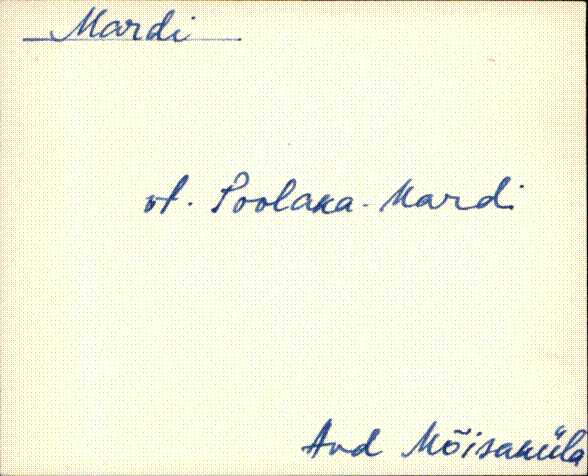 Mardi
vt. Poolaka-Mardi
Aud Mõisaküla